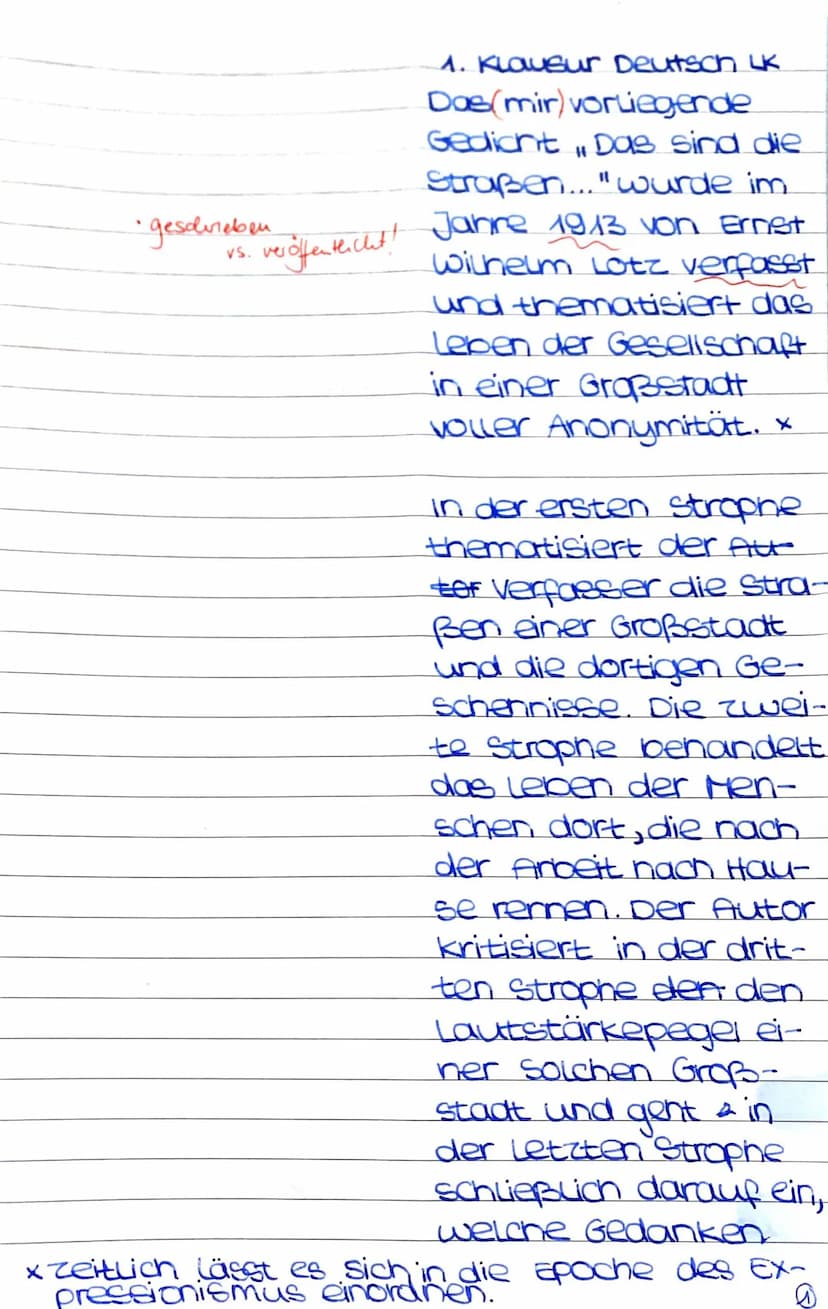 1. Klausur Deutsch LK
Das (mir) vorliegende
Gedicht „Das sind die
Straßen..." wurde im
Jahre 1913 von Ernst
Wilhelm Lotz verfasst
und thematisiert das
Leben der Gesellschaft
in einer Großstadt
voller Anonymität. x
· geschrieben
vs. veröffentlicht!
In der ersten Strophe
thematisiert der Au-
tor Verfasser die Stra-
ßen einer Großstadt
und die dortigen Ge-
schehnisse. Die zwei-
te Strophe behandelt
das Leben der Men-
schen dort, die nach
der Arbeit nach Hau-
se rennen. Der Autor
kritisiert in der drit-
ten Strophe den den
Lautstärkepegel ei-
ner solchen Groß-
stadt und geht in
der letzten Strophe
schließlich darauf ein,
welche Gedanken
x Zeitlich lässt es sich in die Epoche des Ex-
pressionismus einordnen.
1